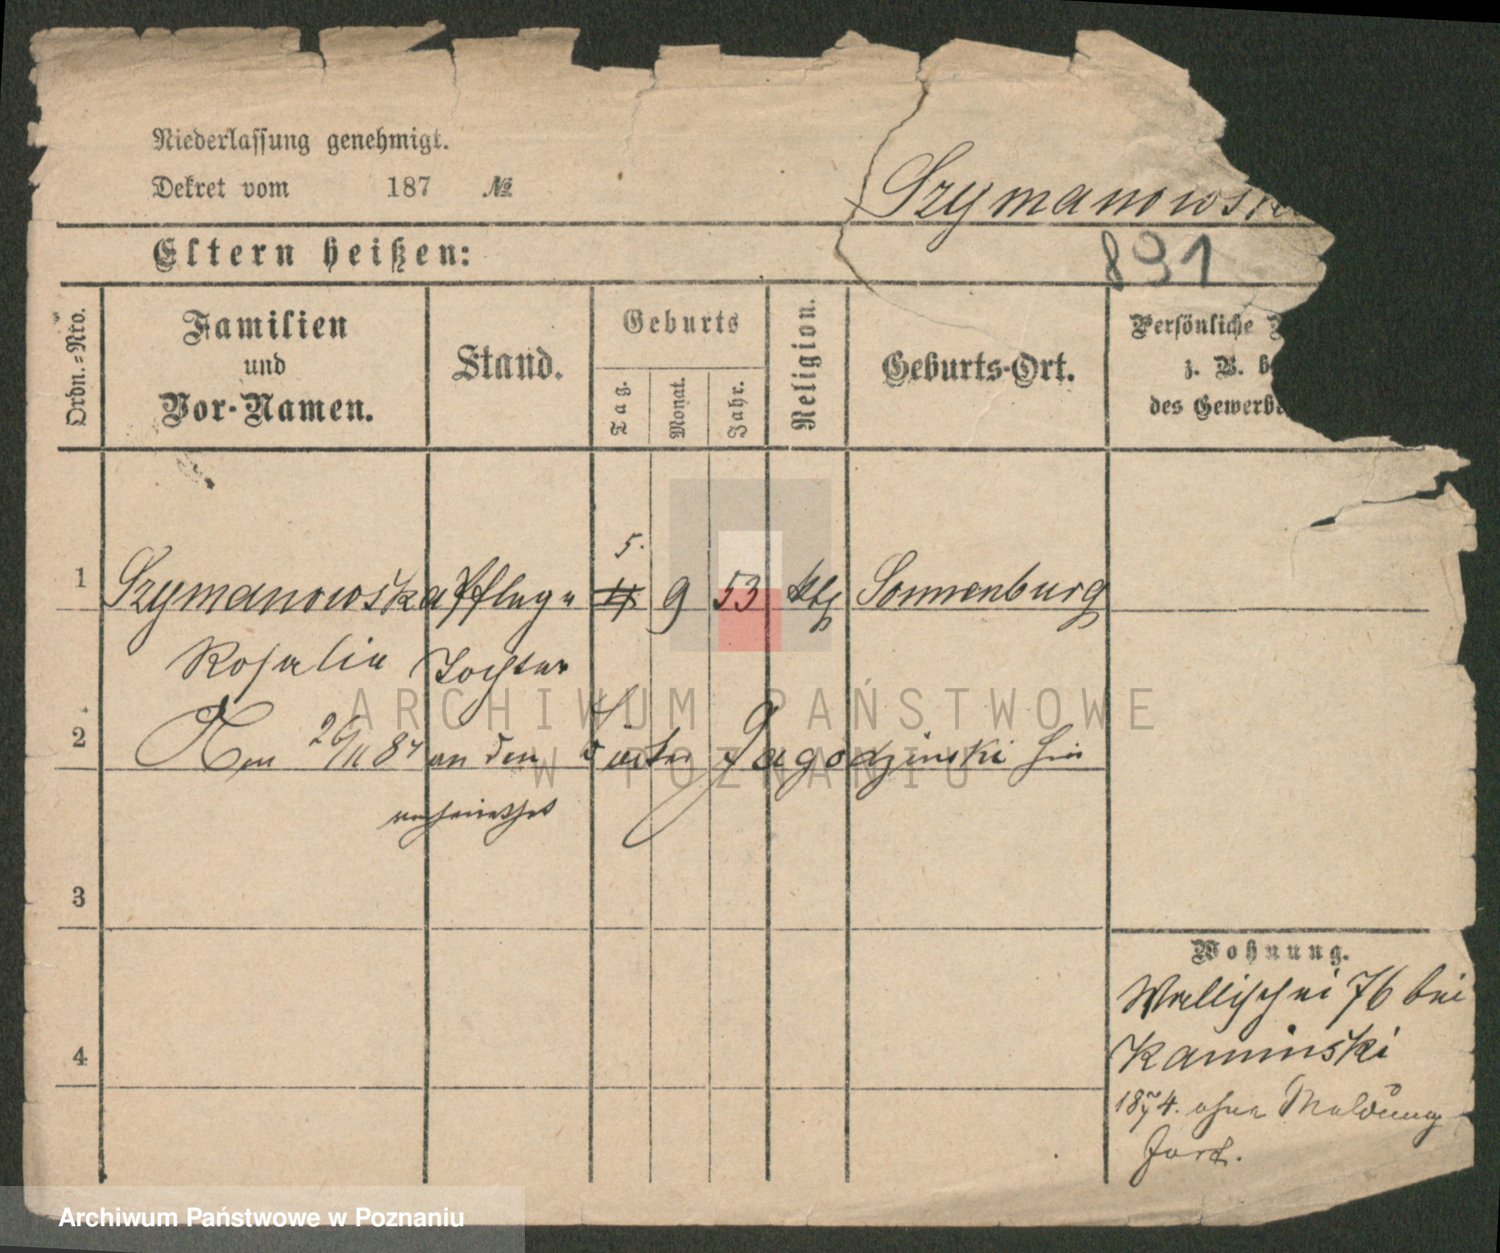 Niederlassung genehmigt.
Dekret vom 187 №
Szymanowska
891
Eltern heißen:
Ordn.-Nro.
Familien
und
Vor-Namen.
Stand.
Geburts
Tag.
Monat.
Jahr.
Religion.
Geburts-Ort.
Persönliche
z. B. b
des Gewerbe
1 Szymanowska Pfleg- 5. 9 53 kth Sonnenburg
Rosalie Tochter
2 Am 26/11 87 an den Jagodzinski hier
verheirathet
3
4
Wohnung.
Wallischei 76 bei
Kaminski
ohne Meldung
fort.
ARCHIWUM PAŃSTWOWE
W POZNANIU
Archiwum Państwowe w Poznaniu